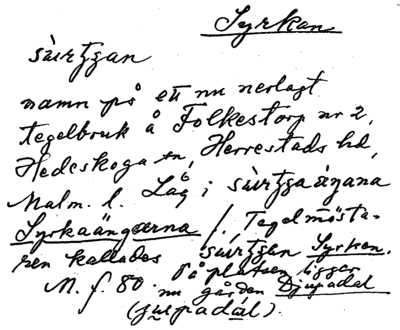 Syrkan
sùrtgan
namn på ett nu nerlagt
tegelbruk å Folkestorp nr 2,
Hedeskoga sn, Herrestads hd,
Malm. l. Låg i sùrtga ängana
Syrkaängarna /. Tegelmästa-
ren kallades sùrtgan Syrken.
M. f. 80. På platsen ligger
nu gården Djupadal
(jupadál).